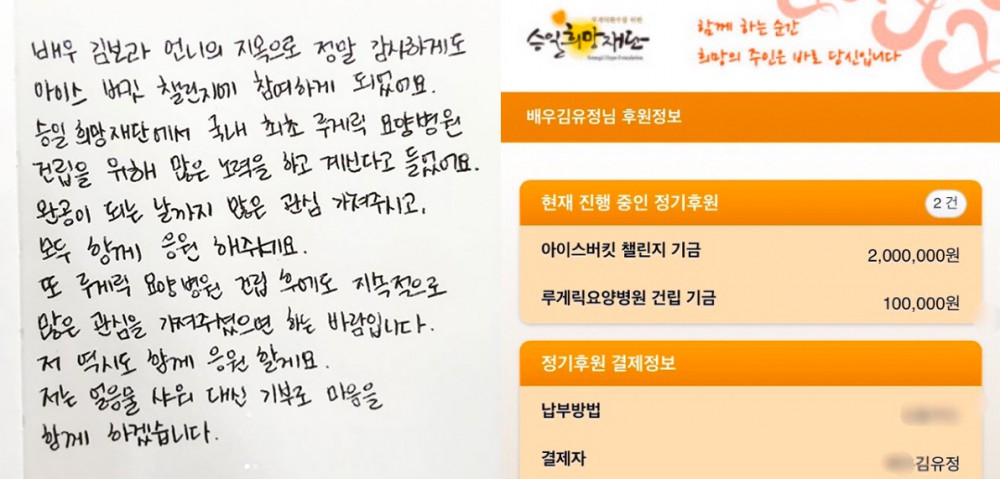 배우 김보라 언니의 지목으로 정말 감사하게도
아이스 버킷 챌린지에 참여하게 되었어요.
승일 희망재단에서 국내 최초 루게릭 요양병원
건립을 위해 많은 노력을 하고 계신다고 들었어요.
완공이 되는 날까지 많은 관심 가져주시고,
모두 함께 응원 해주세요.
또 루게릭 요양병원 건립 후에도 지속적으로
많은 관심을 가져주셨으면 하는 바람입니다.
저 역시도 함께 응원 할게요.
저는 얼음물 샤워 대신 기부로 마음을
함께 하겠습니다.
루게릭환우를 위한
승일희망재단
Seungil Hope Foundation
함께 하는 순간
희망의 주인은 바로 당신입니다
배우김유정님 후원정보
현재 진행 중인 정기후원 2 건
아이스버킷 챌린지 기금 2,000,000원
루게릭요양병원 건립 기금 100,000원
정기후원 결제정보
납부방법
결제자 김유정